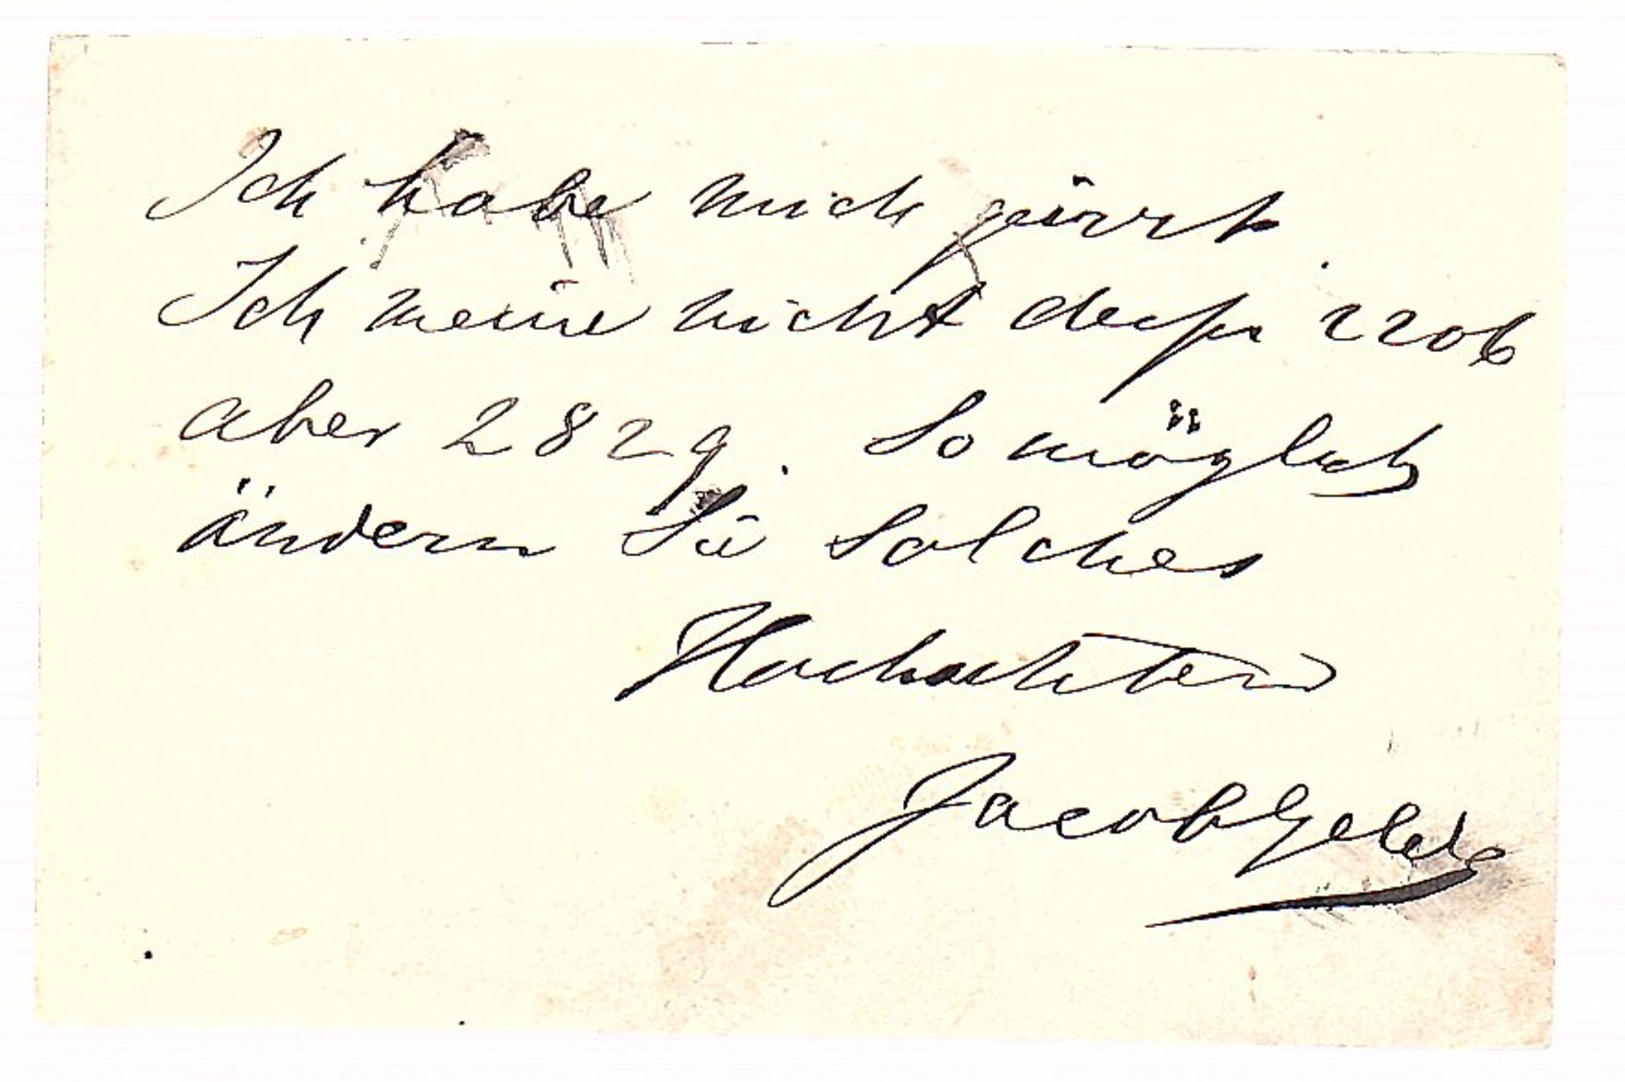 Ich habe mich geirrt.
Ich meine nicht 2206
aber 2829. So möglich
ändern Sie Solches
Hochachtend
Jacob